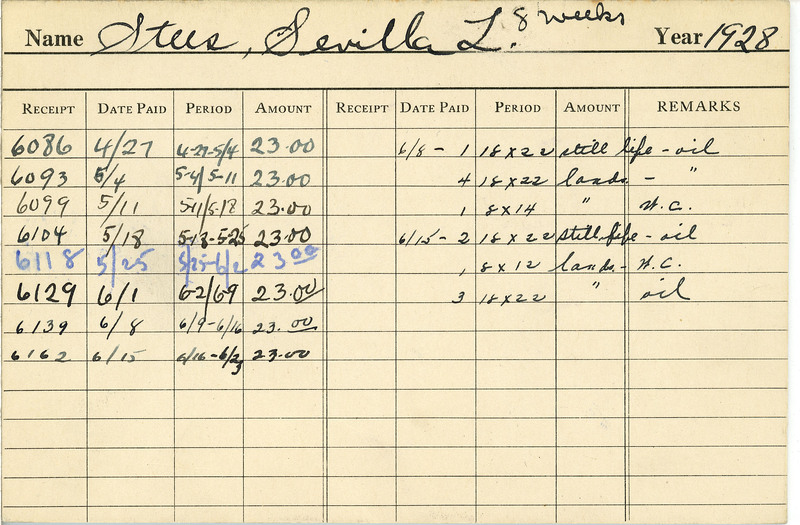 Name Stees, Sevilla L. 8 weeks Year 1928
RECEIPT DATE PAID PERIOD AMOUNT RECEIPT DATE PAID PERIOD AMOUNT REMARKS
6086 4/27 4-27-5/4 23.00 6/8 - 1 18 x 22 still life - oil
6093 5/4 5-4/5-11 23.00 4 18 x 22 lands. - "
6099 5/11 5-11/5-18 23.00 1 8 x 14 " W.C.
6104 5/18 5-18-5-25 23.00 6/15 - 2 18 x 22 still life - oil
6118 5/25 5/25-6/2 23.00 1 8 x 12 lands. - W.C.
6129 6/1 6-2/6-9 23.00 3 18 x 22 " oil
6139 6/8 6/9-6/16 23.00
6162 6/15 6/16-6/23 23.00